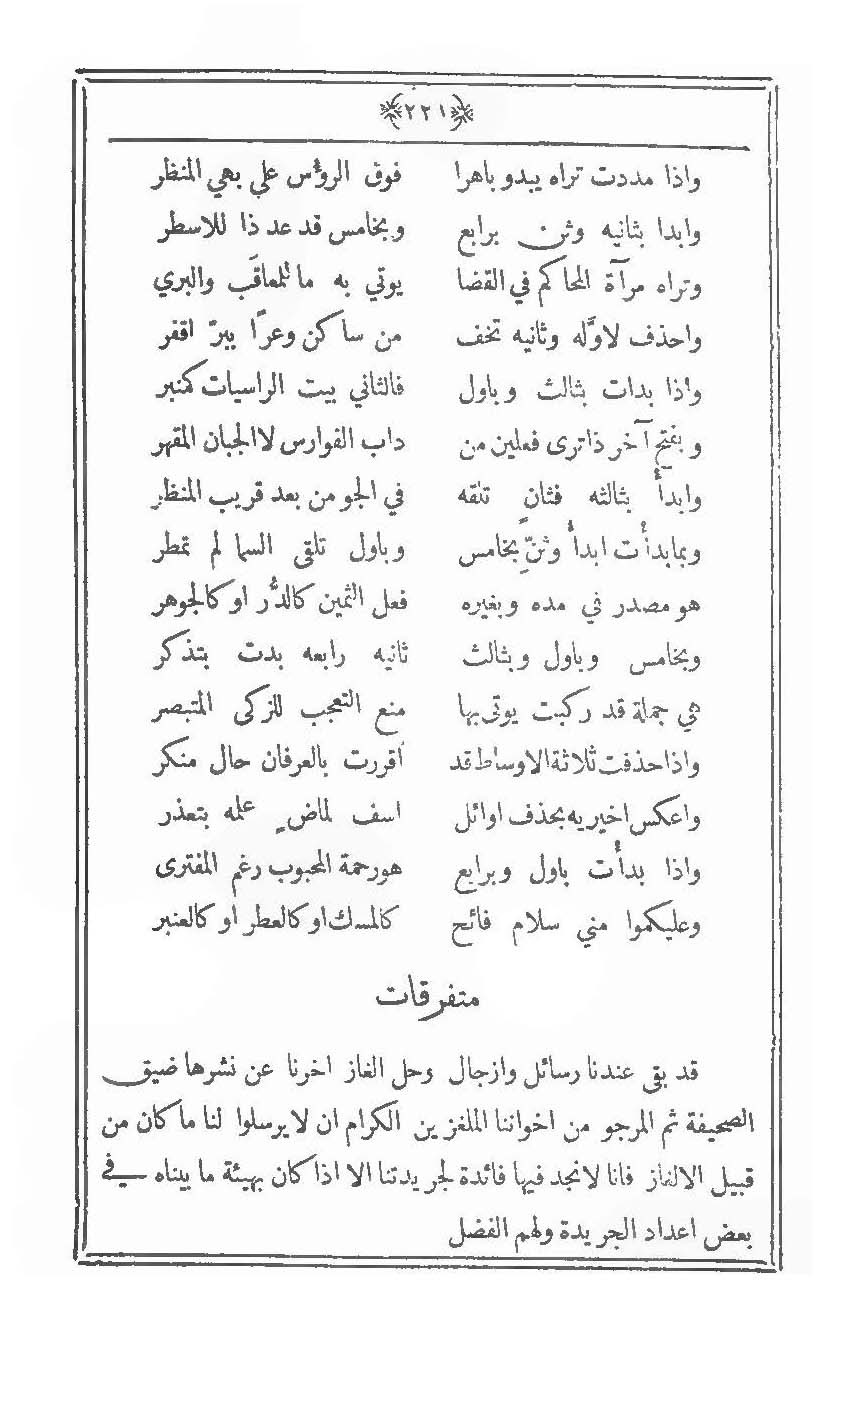 ٢٢١
واذا مددت تراه يبدو باهرا فوق الرؤس علي بهي المنظر
وابدا بثانيه وثن برابع وبخامس قد عد ذا للاسطر
وتراه مرآة المحاكم في القضا يوتي به ما للمعاقَب والبري
واحذف لاوَّله وثانيه تخف من ساكن وعرًا ببرّ اقفر
واذا بدات بثالث وباول فالثاني بيت الراسيات كمنبر
وبفتح آخر ذا ترى فعلين من داب الفوارس لا الجبان المقهر
وابدأ بثالثه فثانٍ تلقه في الجو من بعد قريب المنظر
وبما بدأت ابدأ وثنّ بخامس وباول تلقى السما لم تمطر
هو مصدر في مده وبغيره فعل الثمين كالدُّر او كالجوهر
وبخامس وباول وبثالث ثانيه رابعه بدت بتذكر
هي جملة قد ركبت يوتى بها منع التعجب للزكى المتبصر
واذا حذفت ثلاثة الاوساط قد أقررت بالعرفان حال منكر
واعكس اخيريه بحذف اوائل اسف لماضٍ علمه بتعذر
واذا بدأت باول وبرابع هو رحمة المحبوب رغم المفترى
وعليكموا مني سلام فائح كالمسك او كالعطر او كالعنبر
متفرقات
قد بقي عندنا رسائل وازجال وحل الغاز اخرنا عن نشرها ضيق
الصحيفة ثم المرجو من اخواننا الملغزين الكرام ان لا يرسلوا لنا ما كان من
قبيل الالغاز فانا لا نجد فيها فائدة لجريدتنا الا اذا كان بهيئة ما بيناه في
بعض اعداد الجريدة ولهم الفضل